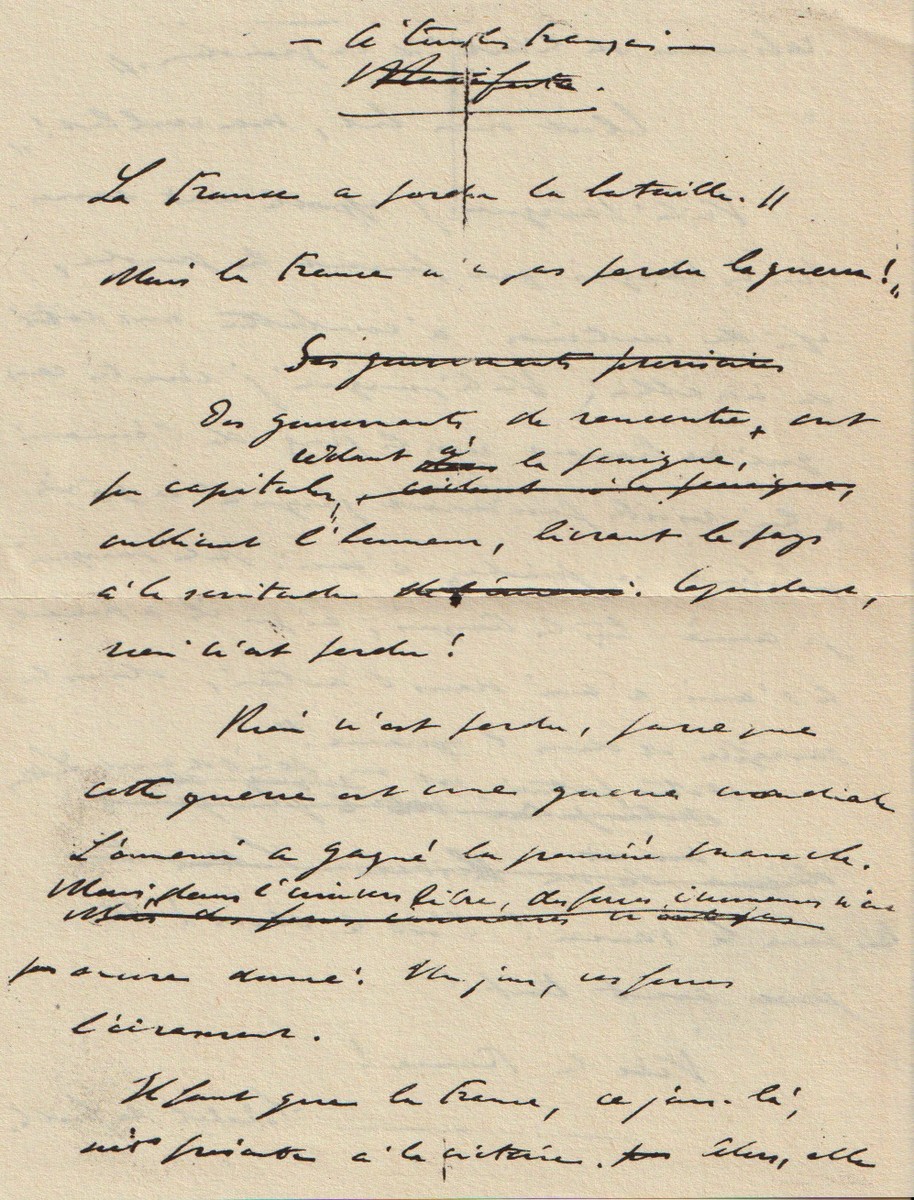 — A tous les Français —
Manifeste.
La France a perdu la bataille.
Mais la France n'a pas perdu la guerre!
Des gouvernants
Des gouvernants de rencontre, ont
cédant à la panique,
pu capituler, cédant à la panique,
oubliant l'honneur, livrant le pays
à la servitude de l'ennemi. Cependant,
rien n'est perdu!
Rien n'est perdu, parce que
cette guerre est une guerre mondiale
L'ennemi a gagné la première manche.
Mais, dans l'univers libre, des forces immenses n'ont
Mais des forces immenses n'ont pas
pas encore donné. Un jour, ces forces
l'écraseront.
Il faut que la France, ce jour-là,
soit présente à la victoire. Alors, elle